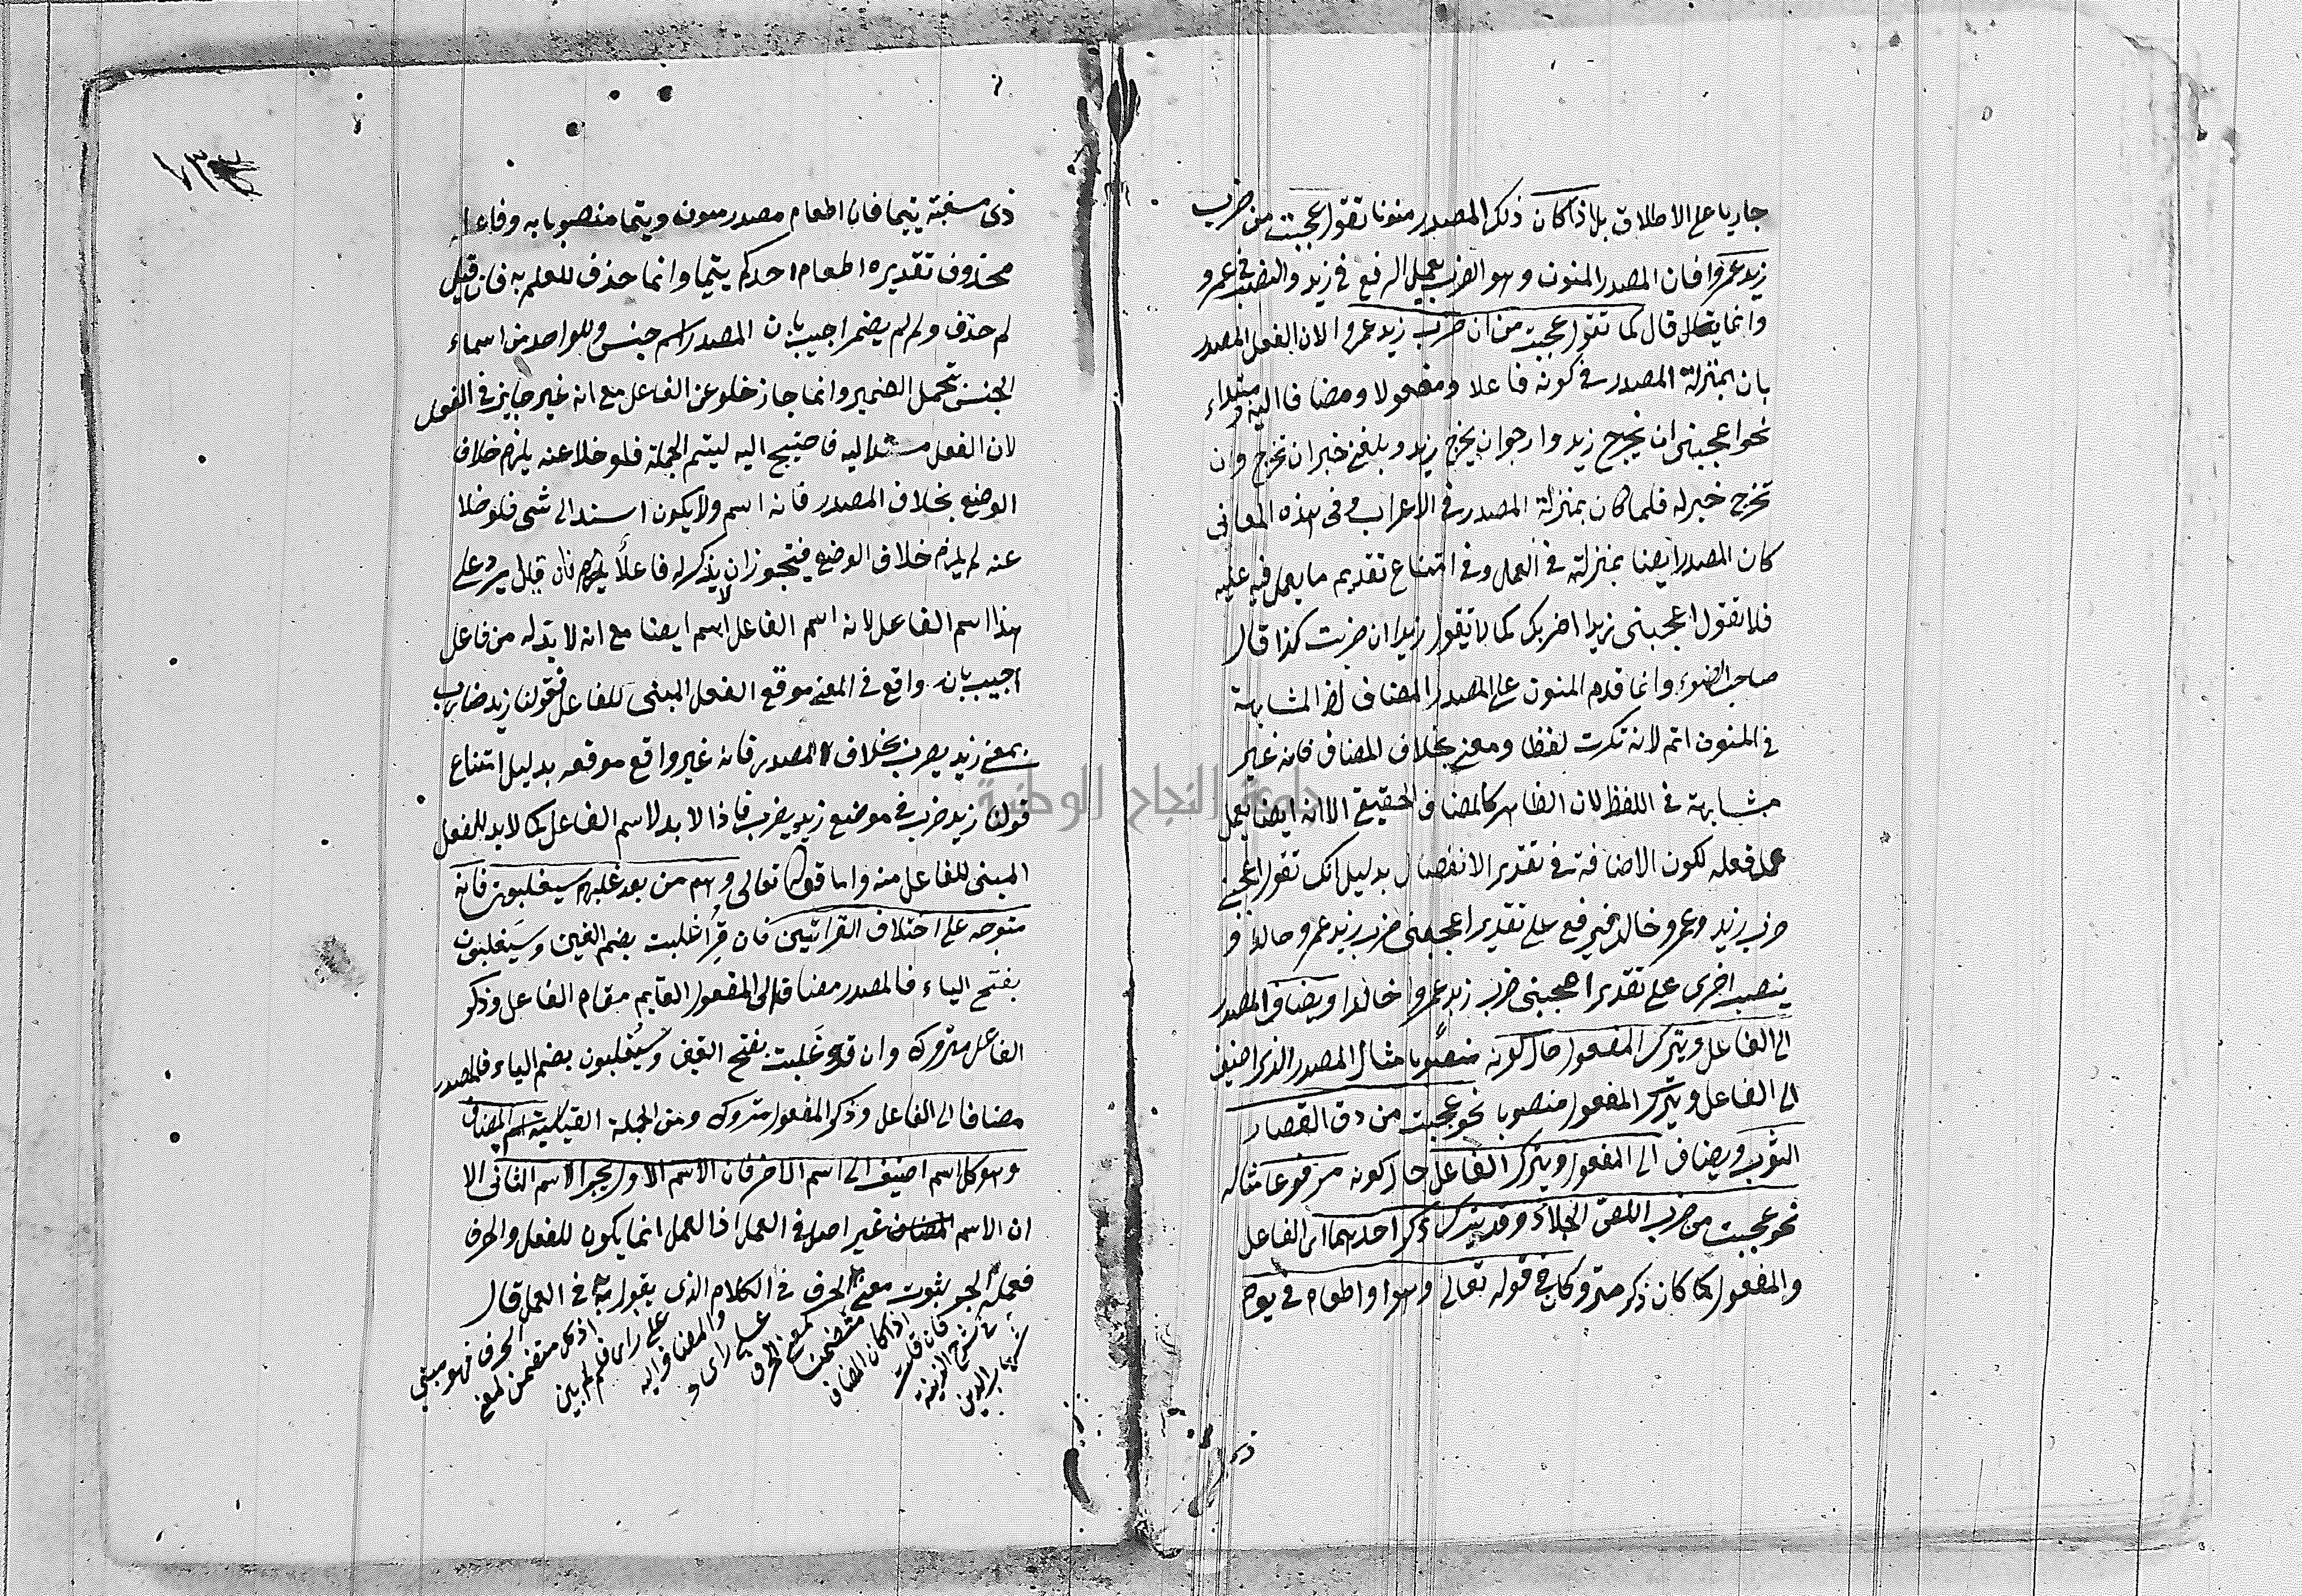 جاريا على الاطلاق بل اذا كان ذلك المصدر منونا تقول عجبت من ضرب
زيد عمروا فان المصدر المنون وهو الضرب يعمل الرفع في زيد والنصب في عمرو
وانما قال كما تقول عجبت من ان ضرب زيد عمروا لان الفعل المصدر
بان بمنزلة المصدر في كونه فاعلا ومفعولا ومضافا اليه ومبتداء
نحو اعجبني ان يخرج زيد وارجوا ان يخرج زيد وبلغني خبر ان تخرج وان
تخرج خير له فلما كان بمنزلة المصدر في الاعراب وفي هذه المعاني
كان المصدر ايضا بمنزلته في العمل وفي امتناع تقديم ما يعمل فيه عليه
فلا تقول اعجبني زيدا ضربك كما لا تقول زيدا ان ضربت كذا قال
صاحب الضوء وانما قدم المنون على المصدر المضاف لان المشابهة
في المنون اتم لانه نكرة لفظا ومعنى بخلاف المضاف فانه غير
مشابهة في اللفظ لان الظاهر كالمضاف الحقيقي الا انه ايضا يعمل
عمل فعله لكون الاضافة في تقدير الانفصال بدليل انك تقول اعجبني
ضرب زيد وعمرو خالد فيرفع على تقدير اعجبني ضرب زيد عمرو خالدا
ينصب اخرى على تقدير اعجبني ضرب زيد عمروا خالدا ويضاف المصدر
الى الفاعل ويترك المفعول حال كونه منصوبا مثال المصدر الذي اضيف
الى الفاعل ويترك المفعول منصوبا نحو عجبت من دق القصار
الثوب ويضاف الى المفعول ويترك الفاعل حال كونه مرفوعا مثاله
نحو عجبت من ضرب اللص الجلاد وقد يترك ذكر احدهما اي الفاعل
والمفعول كما كان ذكر متروكا في قوله تعالى وهو او اطعام في يوم
ذي
٧٣
ذي مسغبة يتيما فان اطعام مصدر منون ويتيما منصوبا به وفاعله
محذوف تقديره اطعام احدكم يتيما وانما حذف للعلم به فان قيل
لم حذف ولم لم يضمر اجيب بان المصدر اسم جنس وللواحد من اسماء
الجنس تحمل الضمير وانما جاز خلوه عن الفاعل مع انه غير جايز في الفعل
لان الفعل مسند اليه فاحتيج اليه ليتم الجملة فلو خلا عنه يلزم خلاف
الوضع بخلاف المصدر فانه اسم ولا يكون اسند الى شيء فلو خلا
عنه لم يلزم خلاف الوضع فيتجوز ان لا يذكر له فاعلا فان قيل يرد على
هذا اسم الفاعل لانه اسم الفاعل اسم ايضا مع انه لا بد له من فاعل
اجيب بان واقع في المعنى موقع الفعل المبنى للفاعل فقولنا زيد ضارب
بمعنى زيد يضرب بخلاف المصدر فانه غير واقع موقعه بدليل امتناع
قولنا زيد ضرب في موضع زيد يضرب فاذا لا بد لاسم الفاعل كما لا بد للفعل
المبنى للفاعل منه واما قوله تعالى وهم من بعد غلبهم سيغلبون فانه
متوجه على اختلاف القرائتين فان قرأ غلبت بضم الغين وسيغلبون
بفتح الياء فالمصدر مضاف الى المفعول القايم مقام الفاعل وذكر
الفاعل متروك وان قرء غلبت بفتح الغين وسيغلبون بضم الياء فالمصدر
مضافا الى الفاعل وذكر المفعول متروك ومن الجملة القياسية اسم المضاف
وهو كل اسم اضيف الى اسم الاخر فان الاسم الاول يجر الاسم الثاني الا
ان الاسم المضاف غير اصل في العمل اذ العمل انما يكون للفعل والحرف
فعمله الجر لثبوت معنى الحرف في الكلام الذي يقول به في العمل قال
فان قلت اذا كان المضاف متضمنا لمعنى الحرف على راى والمضاف اليه على راى فلم لم يبن اذ كل متضمن لمعنى الحرف فهو مبنى
جامعة النجاح الوطنية